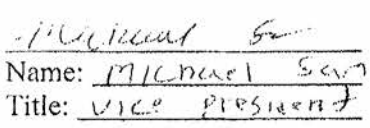 Michael
Name: Michael San
Title: Vice President